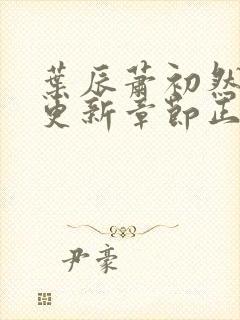 葉辰蕭初然
更新章節正
尹豪